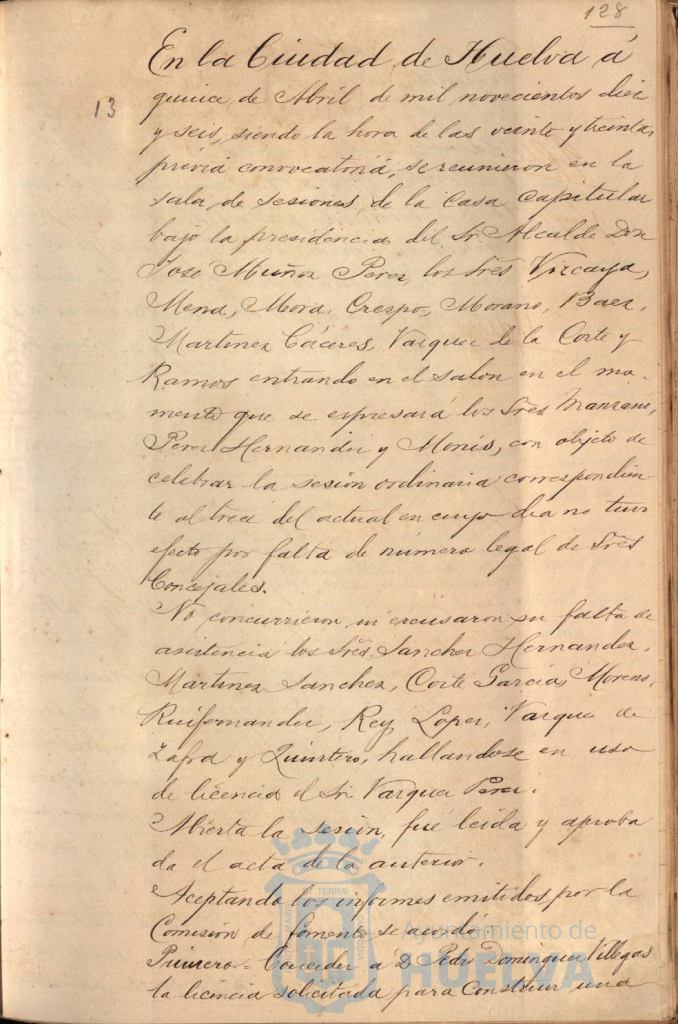 128
13
En la Ciudad de Huelva á
quince de Abril de mil novecientos diez
y seis, siendo la hora de las veinte y treinta,
previa convocatoria, se reunieron en la
sala de sesiones de la Casa Capitular
bajo la presidencia del Sr. Alcalde Don
José Muñoz Perez, los Sres Vizcaya,
Mena, Mora, Crespo, Morano, Baez,
Martinez Cáceres, Vazquez de la Corte y
Ramos entrando en el salon en el mo-
mento que se espresará los Sres Manzano,
Perez Hernandez y Monís, con objeto de
celebrar la sesión ordinaria correspondien-
te al trece del actual en cuyo dia no tuvo
efecto por falta de número legal de Sres
Concejales.
No concurrieron ni escusaron su falta de
asistencia los Sres. Sanchez Hernandez,
Martinez Sanchez, Corte Garcia, Moreno,
Ruifernandez, Rey Lopez, Vazquez de
Zafra y Quintero, hallandose en uso
de licencia el Sr. Vazquez Perez.
Abierta la sesión, fué leida y aproba
da el acta de la anterior.
Aceptando los informes emitidos por la
Comisión de fomento se acordó:
Primero = Conceder a D. Pedro Dominguez Villegas
la licencia solicitada para construir una
Ayuntamiento de
HUELVA